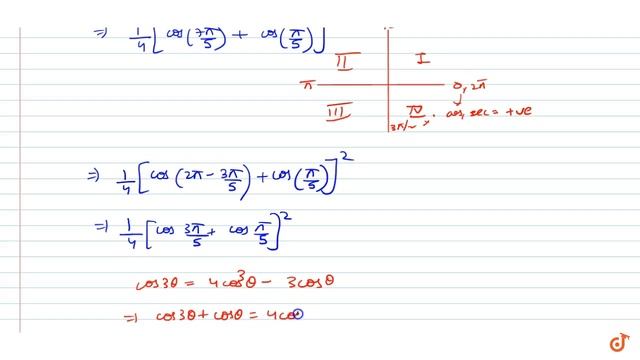 ⇒ 1/4 [cos(7π/5) + cos(π/5)]
II I
π 0, 2π
III IV cos, sec = +ve
3π/2
⇒ 1/4 [cos(2π - 3π/5) + cos(π/5)]²
⇒ 1/4 [cos 3π/5 + cos π/5]²
cos3θ = 4cos³θ - 3cosθ
⇒ cos3θ + cosθ = 4cos